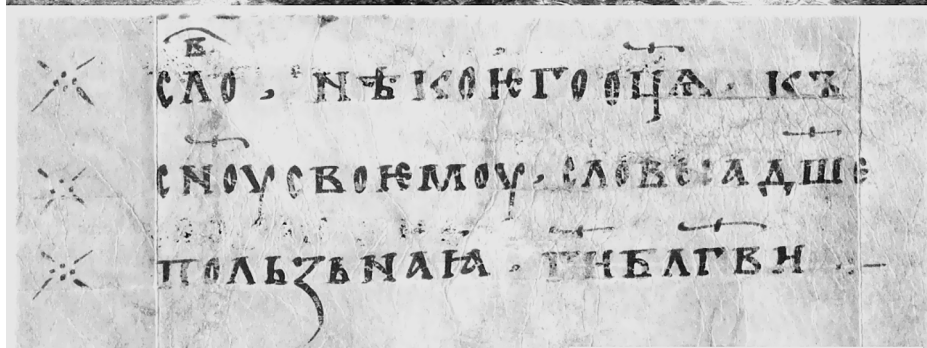 слоⷡ · нѣкоѥго оц҃ѧ · къ
сн҃оу своѥмоу · словеса дш҃е
польꙁьнаꙗ · г҃и бл҃гви